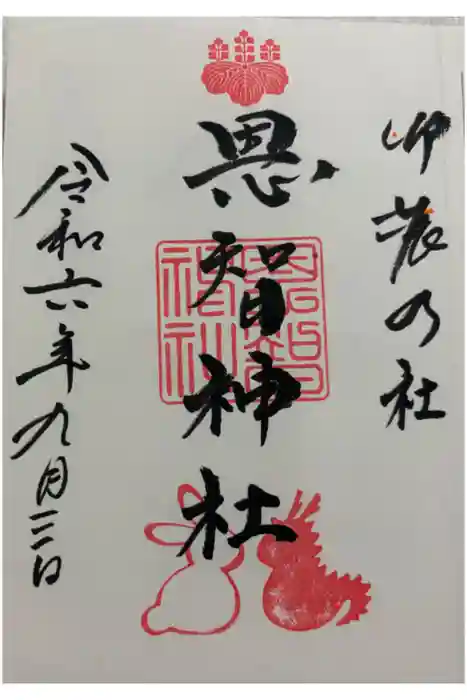 卯辰の社
恩智神社
恩智神社
令和六年九月三日